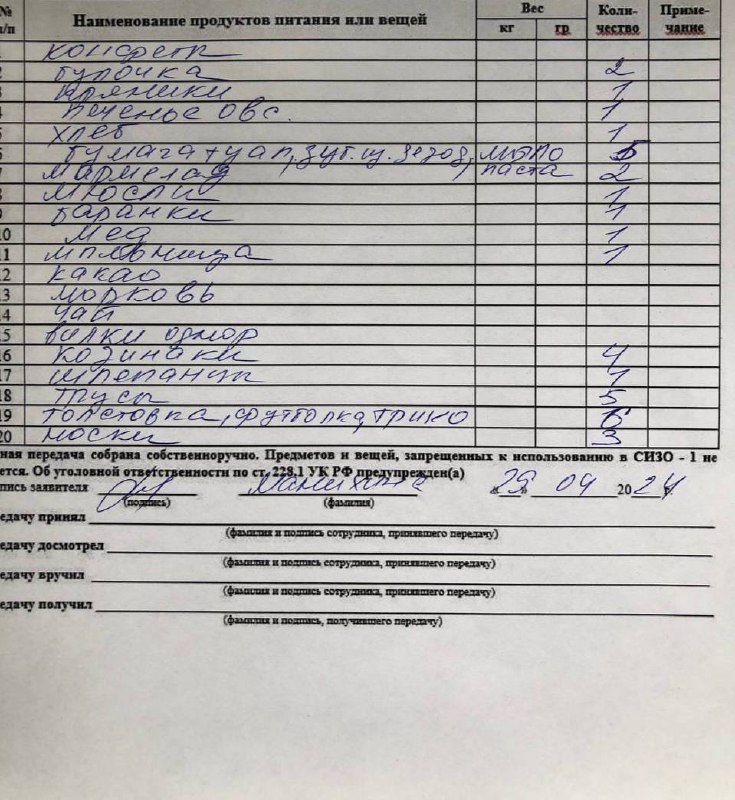 № п/п Наименование продуктов питания или вещей Вес Коли- Приме-
кг гр чество чание
конфеты
2 булочка 2
3 пряники 1
4 печенье овс. 1
5 хлеб 1
6 бумага туал, зуб. щ. 5
7 мармелад, паста 2
8 мюсли 1
9 баранки 1
10 мёд 1
11 мыльница 1
12 какао
13 морковь
14 чай
15 вилки однор
16 козинаки 4
17 шлепанцы 1
18 трусы 5
19 толстовка, футболка, трико 6
20 носки 3
ная передача собрана собственноручно. Предметов и вещей, запрещенных к использованию в СИЗО - 1 не
ется. Об уголовной ответственности по ст. 228.1 УК РФ предупрежден(а)
пись заявителя « » 09 2024 г.
(подпись) (фамилия)
редачу принял
(фамилия и подпись сотрудника, принявшего передачу)
редачу досмотрел
(фамилия и подпись сотрудника, принявшего передачу)
редачу вручил
(фамилия и подпись сотрудника, принявшего передачу)
редачу получил
(фамилия и подпись, получившего передачу)